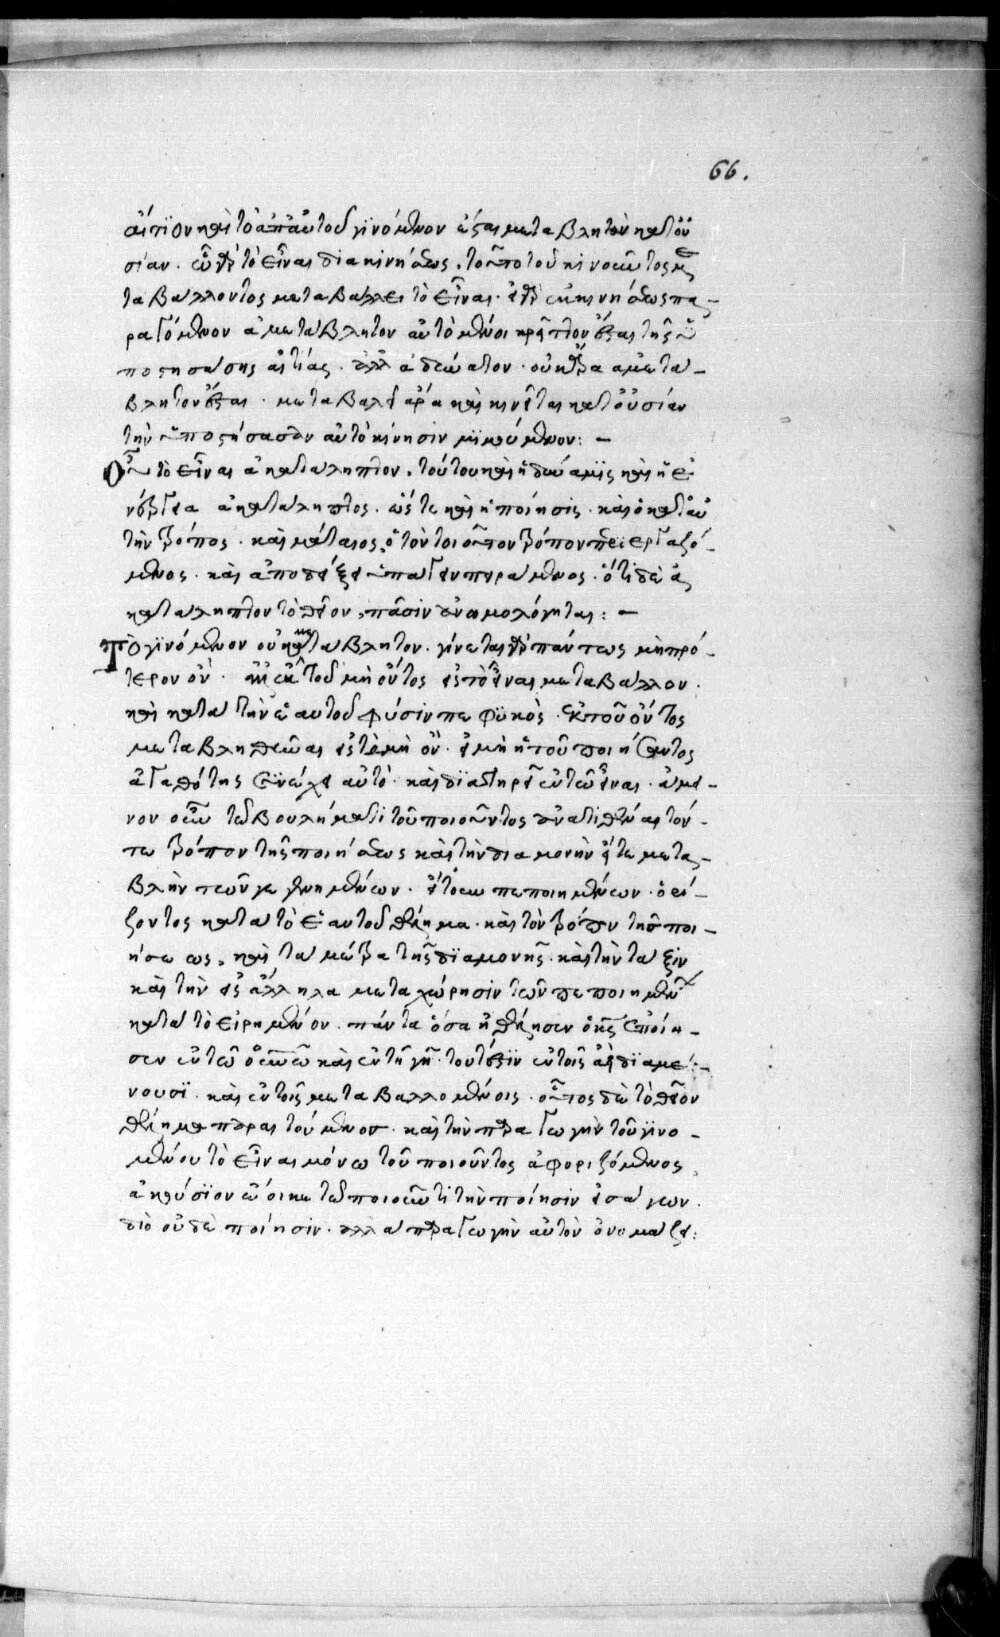 66.
αἴτιον καὶ τὸ ἀπ' αὐτοῦ γινόμενον ἔσται μεταβλητὸν κατ' οὐ
σίαν. εὖ γὰρ τὸ εἶναι διὰ κινήσεως. τοῦτο τοῦ κινοῦντος με
ταβάλλοντος μεταβάλλει τὸ εἶναι. κινήσεως πα-
ραγόμενον ἀμετάβλητον αὐτὸ μένοι κρεῖττον ἔσται τῆς ὑ
ποστησάσης αἰτίας. ἀλλ' ἀδύνατον. οὐκ ἄρα ἀμετά-
βλητον ἔσται. μεταβαλεῖ ἄρα καὶ κινεῖται κατ' οὐσίαν
τὴν ὑποστήσασαν αὐτὸ κίνησιν μιμούμενον: –
Οὗ τὸ εἶναι ἀκατάληπτον. τούτου καὶ ἡ δύναμις καὶ ἡ ἐ
νέργεια ἀκατάληπτος. ὥστε καὶ ἡ ποίησις. καὶ ὁ κατ' αὐ
τὴν τρόπος. καὶ μάταιος ὁ τὸν τοιοῦτον τρόπον περιεργαζό-
μενος. καὶ ἀποδεῖξαι πειράμενος. ὅτι δὲ ἀ
κατάληπτον τὸ θεῖον, πᾶσιν ἀνωμολόγηται: –
Τὸ γινόμενον οὐκ ἀμετάβλητον. γίνεται γὰρ πάντως μὴ πρό-
τερον ὄν. ἐκ τοῦ μὴ ὄντος εἰς τὸ εἶναι μεταβάλλον.
καὶ κατὰ τὴν ἑαυτοῦ φύσιν πεφυκὸς ἐκ τοῦ ὄντος
μεταβληθῆναι εἰς τὸ μὴ ὄν. εἰ μὴ ἡ τοῦ ποιήσαντος
ἀγαθότης συνέχει αὐτὸ. καὶ διατηρεῖ ἐν τῷ εἶναι. ἄμει-
νον οὖν τῷ βουλήματι τοῦ ποιοῦντος ἀνατιθέναι τόν-
τε τρόπον τῆς ποιήσεως καὶ τὴν διαμονὴν εἴτε μετα-
βολὴν τῶν γεγενημένων. εἴτουν πεποιημένων. ὁρί-
ζοντος κατὰ τὸ ἑαυτοῦ θέλημα. καὶ τὸν τρόπον τῆς ποι-
ήσεως, καὶ τὰ μέτρα τῆς διαμονῆς. καὶ τὴν τάξιν
καὶ τὴν εἰς ἄλληλα μεταχώρησιν τῶν πεποιημένων
κατὰ τὸ εἰρημένον. πάντα ὅσα ἠθέλησεν ὁ κύριος ἐποίη-
σεν ἐν τῷ οὐρανῷ καὶ ἐν τῇ γῇ. τουτέστιν ἐν τοῖς ἀεὶ διαμέ-
νουσι. καὶ ἐν τοῖς μεταβαλλομένοις. οὗτος δὲ τὸ θεῖον
θέλημα καὶ τὴν παραγωγὴν τοῦ γινο-
μένου τὸ εἶναι μόνῳ τοῦ ποιοῦντος ἀφοριζόμενος
ἀκούσιον ἔοικε τῷ ποιοῦντι τὴν ποίησιν εἰσάγων.
διὸ οὐδὲ ποίησιν. ἀλλὰ παραγωγὴν αὐτὸν ὀνομάζει: